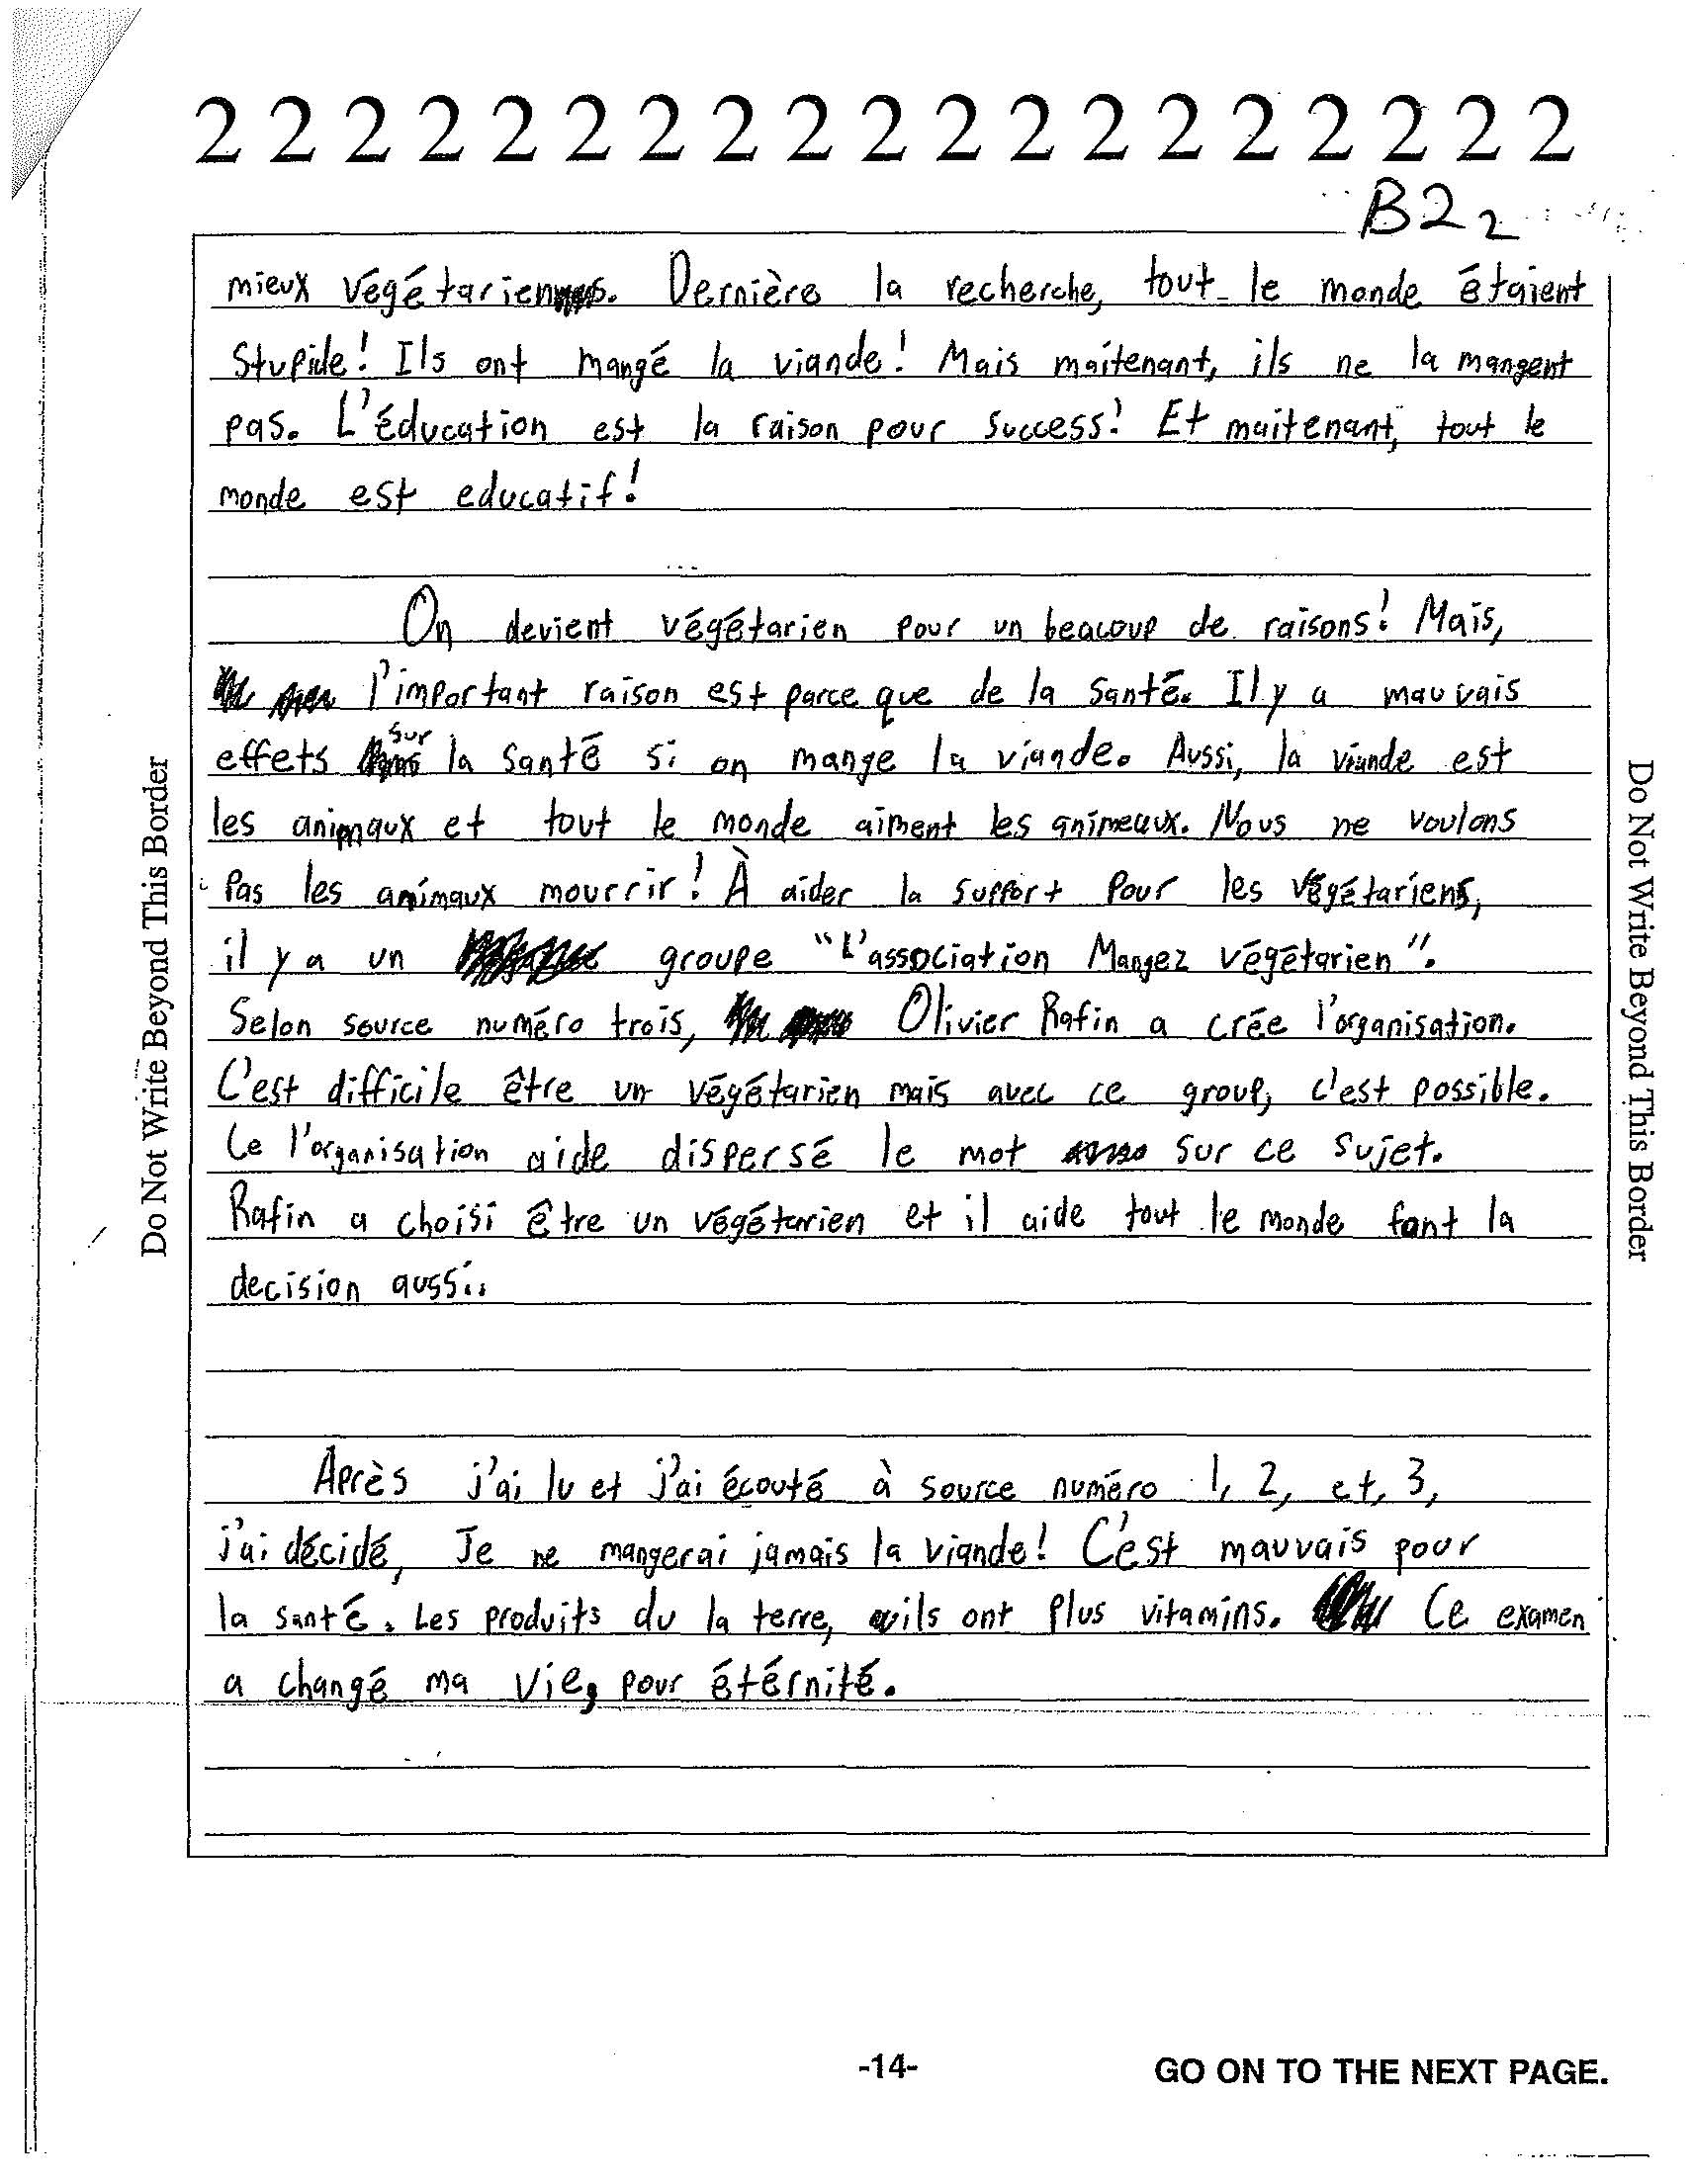 2 2 2 2 2 2 2 2 2 2 2 2 2 2 2 2 2 2 2
B2 2
mieux végétariens. Dernière la recherche, tout le monde étaient
stupide! Ils ont mangé la viande! Mais maitenant, ils ne la mangent
pas. L'éducation est la raison pour success! Et maitenant, tout le
monde est educatif!
On devient végétarien pour un beacoup de raisons! Mais,
l'important raison est parce que de la santé. Il y a mauvais
effets sur la santé si on mange la viande. Aussi, la viande est
les animaux et tout le monde aiment les animeaux. Nous ne voulons
pas les animaux mourrir! À aider la support pour les végétariens,
il y a un groupe "L'association Mangez végétarien".
Selon source numéro trois, Olivier Rafin a crée l'organisation.
C'est difficile être un végétarien mais avec ce group, c'est possible.
Ce l'organisation aide dispersé le mot sur ce sujet.
Rafin a choisi être un végétarien et il aide tout le monde font la
decision aussi.
Après j'ai lu et j'ai écouté à source numéro 1, 2, et, 3,
j'ai décidé, Je ne mangerai jamais la viande! C'est mauvais pour
la santé. Les produits du la terre, ils ont plus vitamins. Ce examen
a changé ma vie, pour étérnité.
Do Not Write Beyond This Border
Do Not Write Beyond This Border
-14-
GO ON TO THE NEXT PAGE.